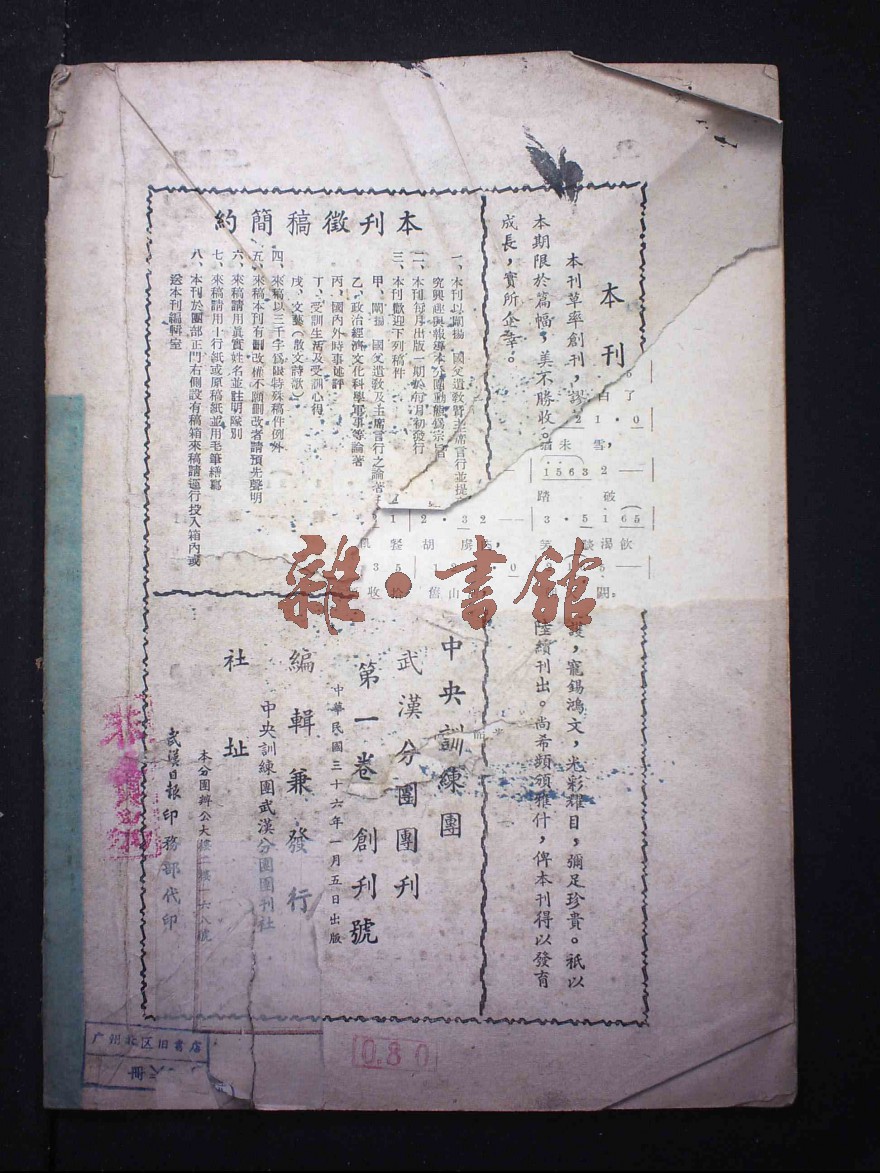 本刊
本刊草率創刊，謬
護，寵錫鴻文，光彩耀目，彌足珍貴。祇以
本期限於篇幅，美不勝收。
陸續刊出。尚希頻頒雅什，俾本刊得以發育
成長，實所企幸。
本刊徵稿簡約
一、本刊以闡揚　國父遺敎曁主席言行並提
究興趣與報導本分團動態爲宗旨
二、本刊每月出版一期於每月初發行
三、本刊歡迎下列稿件
甲、闡揚　國父遺敎及主席言行之論著
乙、政治經濟文化科學軍事等論著
丙、國內外時事述評
丁、受訓生活及受訓心得
戊、文藝（散文詩歌）
四、來稿以三千字爲限特殊稿件例外
五、來稿本刊有刪改權不願刪改者請預先聲明
六、來稿請用眞實姓名並註明隊別
七、來稿請用十行紙或原稿紙並用毛筆繕寫
八、本刊於團部正門右側設有稿箱來稿請逕行投入箱內或
送本刊編輯室
中央訓練團
武漢分團團刊
第一卷創刊號
中華民國三十六年一月五日出版
編輯兼發行
中央訓練團武漢分團團刊社
社址
本分團辦公大樓二樓一六八號
武漢日報印務部代印
了
白
2 1 · 0
雪，
未
1 5 6 3 2 —
踏 破
1 2 · 3 2 — 3 · 5 1 6 5
胡 虜 渴飲
3 5 0
收 拾 舊 山 闕。
雜·書館
0.80
广州 区旧書店
册